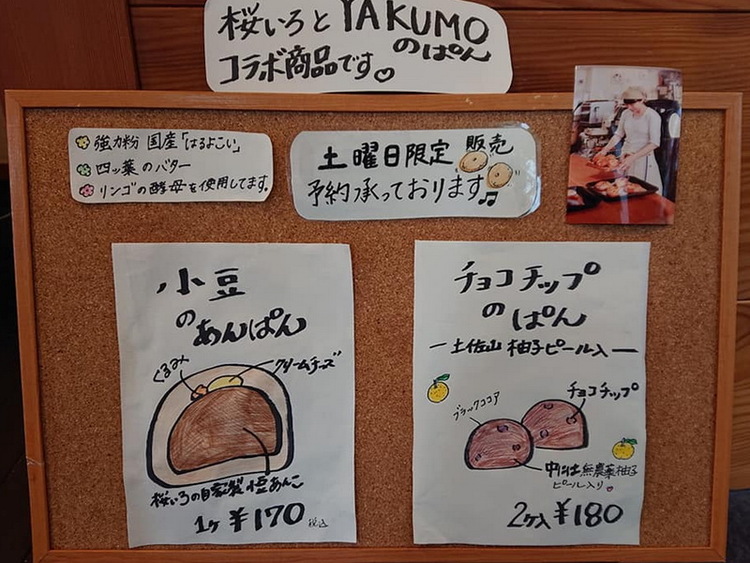 桜いろとYAKUMO
のぱん
コラボ商品です♡
強力粉 国産「はるよこい」
四ッ葉のバター
リンゴの酵母を使用してます。
土曜日限定 販売
予約承っております♫
小豆
のあんぱん
くるみ
クリームチーズ
桜いろの自家製 小豆あんこ
1ヶ ¥170 税込
チョコチップ
のぱん
ー土佐山 柚子ピール入ー
ブラックココア
チョコチップ
中には無農薬柚子
ピール入り♡
2ヶ入 ¥180